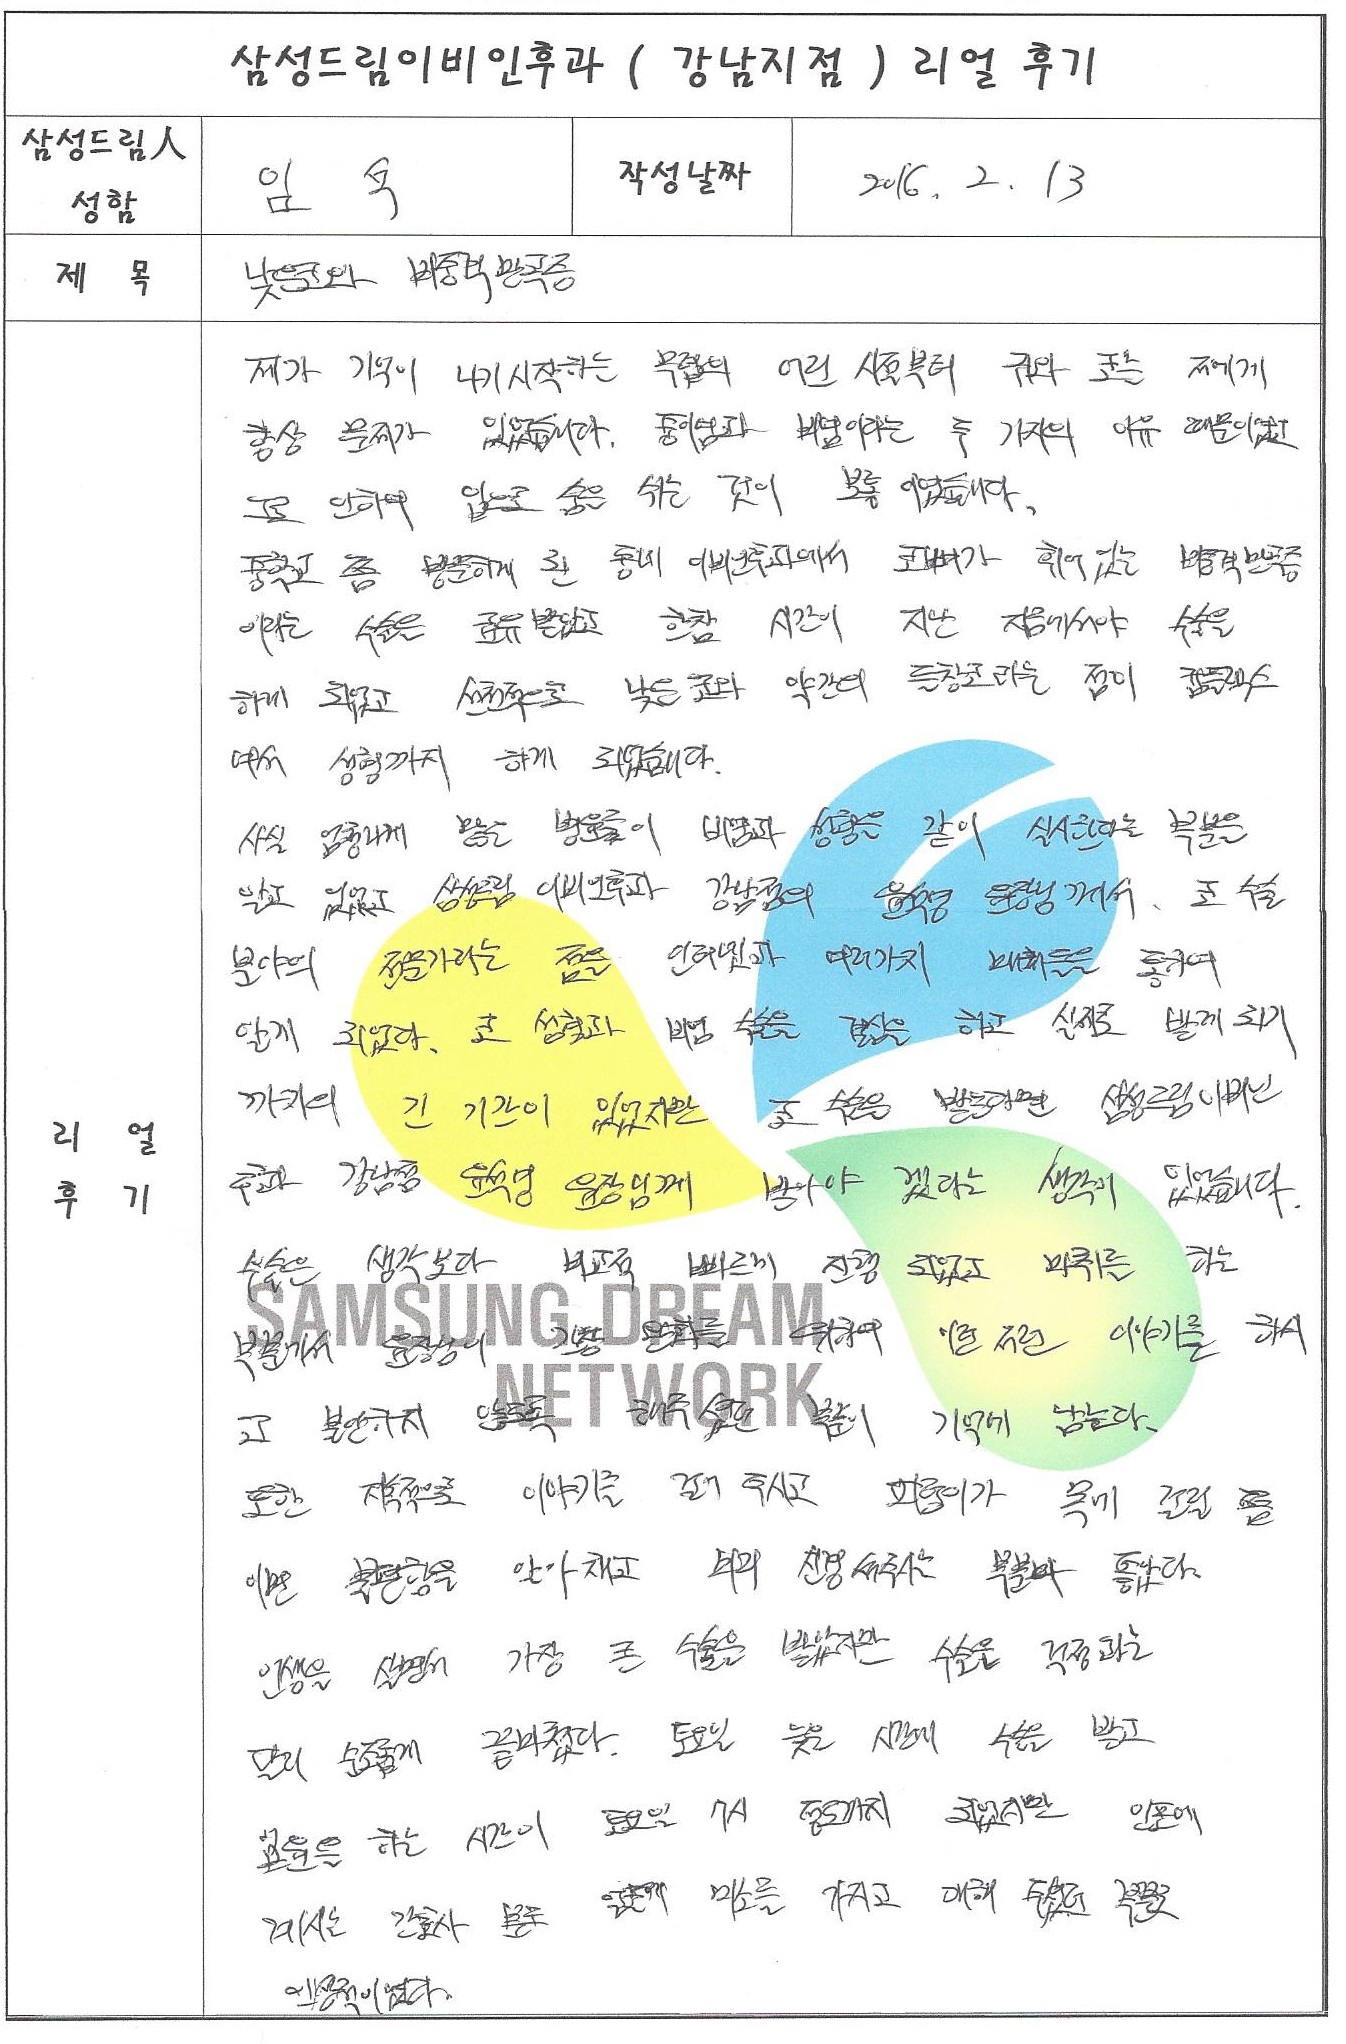 삼성드림이비인후과 ( 강남지점 ) 리얼 후기
삼성드림人
성함
임 욱
작성날짜
2016. 2. 13
제 목
낮은코와 비중격만곡증
리 얼
후 기
제가 기억이 나기시작하는 무렵의 어린 시절부터 귀와 코는 저에게
항상 문제가 있었습니다. 중이염과 비염이라는 두 가지의 이유 때문이었고
그로 인하여 입으로 숨을 쉬는 것이 보통 이었습니다.
중학교 쯤 방문하게 된 동네 이비인후과에서 코뼈가 휘어 있는 비중격만곡증
이라는 수술을 권유받았고 한참 시간이 지난 지금에서야 수술을
하게 되었고 선천적으로 낮은 코와 약간의 들창코 라는 점이 컴플렉스
여서 성형까지 하게 되었습니다.
사실 엄청나게 많은 병원들이 비염과 성형을 같이 실시한다는 부분을
알고 있었고 삼성드림 이비인후과 강남점의 원장님께서 코 수술
분야의 전문가라는 점을 인터넷과 여러가지 매체들을 통하여
알게 되었다. 코 성형과 비염 수술을 결심을 하고 실제로 받게 되기
까지의 긴 기간이 있었지만 코 수술을 받는다면 삼성드림이비인
후과 강남점 원장님께 받아야 겠다는 생각이 있었습니다.
수술은 생각보다 비교적 빠르게 진행 되었고 마취를 하는
부분에서 원장님이 긴장 완화를 위하여 이런 저런 이야기를 하시
고 불안하지 않도록 해주셨던 부분이 기억에 남는다.
또한 지속적으로 이야기를 걸어 주시고 피덩이가 목에 걸릴 쯤
이면 불편함을 알아 채고 신경써주시는 부분이 좋았다.
인생을 살면서 가장 큰 수술을 받았지만 수술은 걱정과는
달리 순조롭게 끝마쳤다. 토요일 늦은 시간에 수술을 받고
하는 시간이 토요일 7시 정도까지 되었지만 인포에
계시는 간호사 분도 미소를 가지고 대해 주셨던 부분도
인상적이었다.
SAMSUNG DREAM
NETWORK